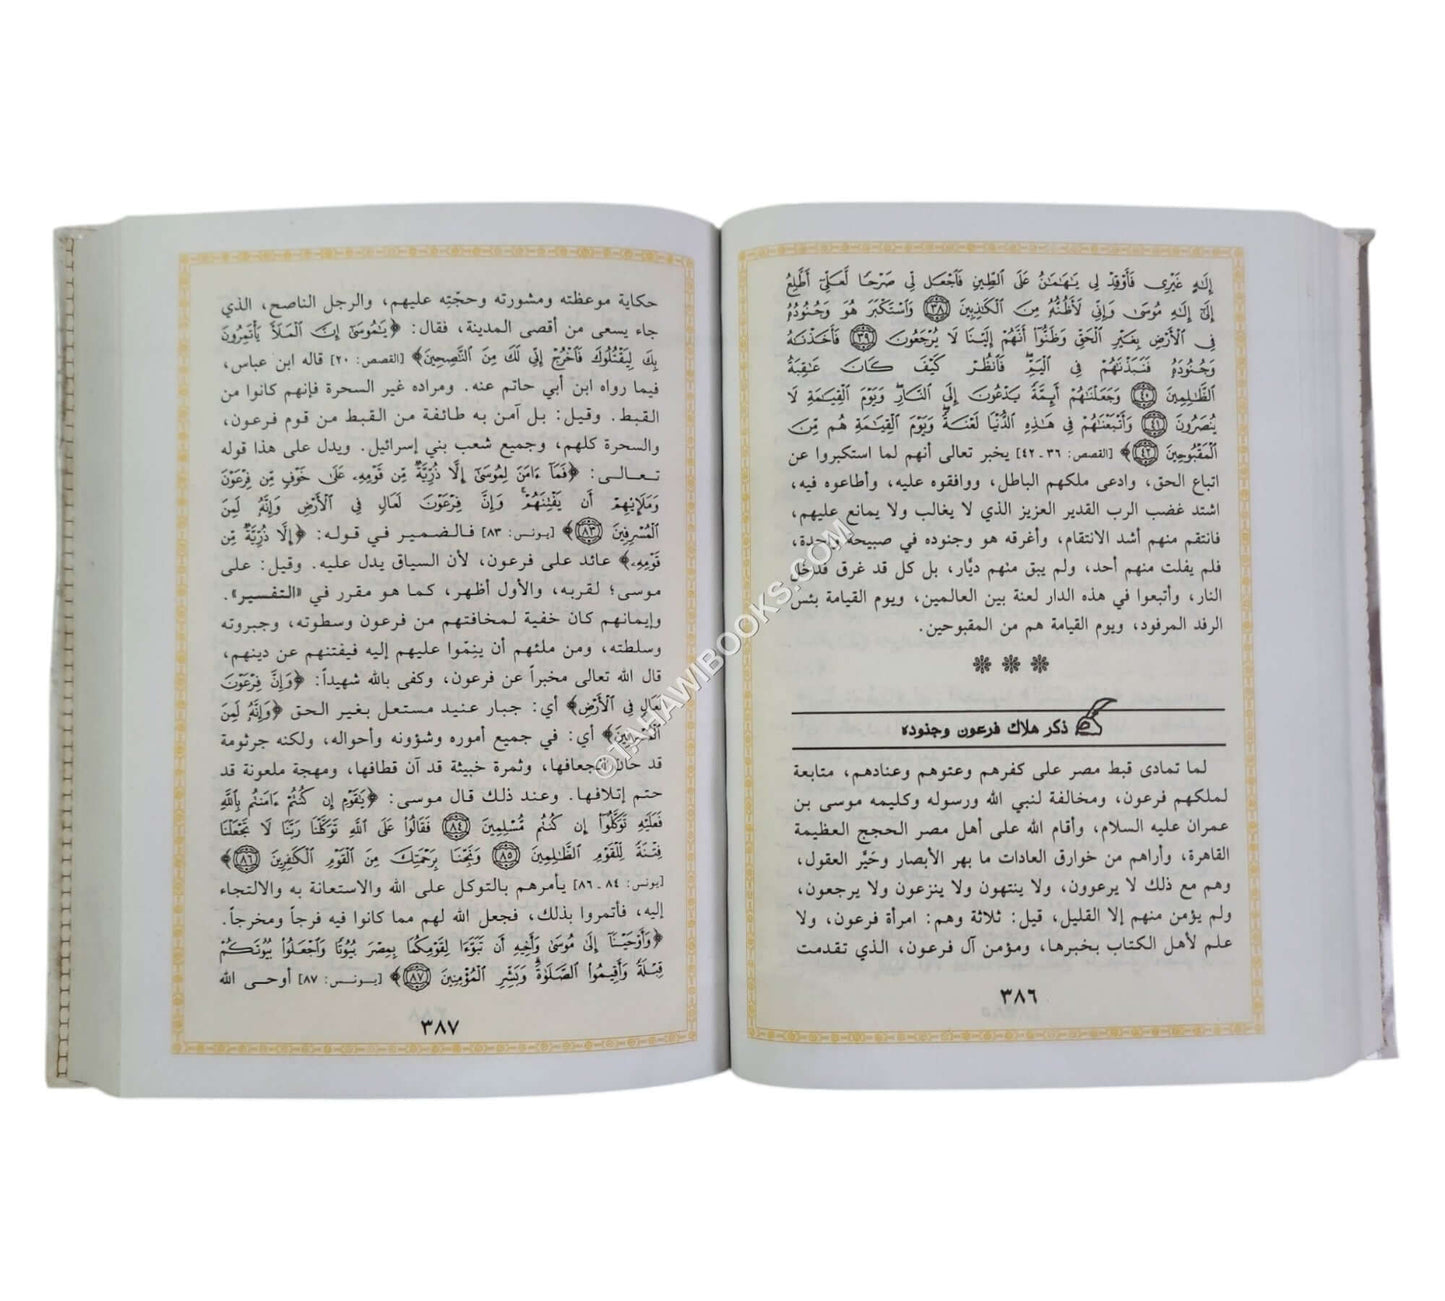 إِلَٰهٍ غَيْرِي فَأَوْقِدْ لِي يَٰهَٰمَٰنُ عَلَى ٱلطِّينِ فَٱجْعَل لِّي صَرْحًا لَّعَلِّيٓ أَطَّلِعُ
إِلَىٰٓ إِلَٰهِ مُوسَىٰ وَإِنِّي لَأَظُنُّهُۥ مِنَ ٱلْكَٰذِبِينَ ٣٨ وَٱسْتَكْبَرَ هُوَ وَجُنُودُهُۥ
فِي ٱلْأَرْضِ بِغَيْرِ ٱلْحَقِّ وَظَنُّوٓا۟ أَنَّهُمْ إِلَيْنَا لَا يُرْجَعُونَ ٣٩ فَأَخَذْنَٰهُ
وَجُنُودَهُۥ فَنَبَذْنَٰهُمْ فِي ٱلْيَمِّ فَٱنظُرْ كَيْفَ كَانَ عَٰقِبَةُ
ٱلظَّٰلِمِينَ ٤٠ وَجَعَلْنَٰهُمْ أَئِمَّةً يَدْعُونَ إِلَى ٱلنَّارِ وَيَوْمَ ٱلْقِيَٰمَةِ لَا
يُنصَرُونَ ٤١ وَأَتْبَعْنَٰهُمْ فِي هَٰذِهِ ٱلدُّنْيَا لَعْنَةً وَيَوْمَ ٱلْقِيَٰمَةِ هُم مِّنَ
ٱلْمَقْبُوحِينَ ٤٢﴾ [القصص: ٣٦ ـ ٤٢] يخبر تعالى أنهم لما استكبروا عن
اتباع الحق، وادعى ملكهم الباطل، ووافقوه عليه، وأطاعوه فيه،
اشتد غضب الرب القدير العزيز الذي لا يغالب ولا يمانع عليهم،
فانتقم منهم أشد الانتقام، وأغرقه هو وجنوده في صبيحة واحدة،
فلم يفلت منهم أحد، ولم يبق منهم ديَّار، بل كل قد غرق فدخل
النار، وأتبعوا في هذه الدار لعنة بين العالمين، ويوم القيامة بئس
الرفد المرفود، ويوم القيامة هم من المقبوحين.
ذكر هلاك فرعون وجنوده
لما تمادى قبط مصر على كفرهم وعتوهم وعنادهم، متابعة
لملكهم فرعون، ومخالفة لنبي الله ورسوله وكليمه موسى بن
عمران عليه السلام، وأقام الله على أهل مصر الحجج العظيمة
القاهرة، وأراهم من خوارق العادات ما بهر الأبصار وحيَّر العقول،
وهم مع ذلك لا يرعوون، ولا ينتهون ولا ينزعون ولا يرجعون،
ولم يؤمن منهم إلا القليل، قيل: ثلاثة وهم: امرأة فرعون، ولا
علم لأهل الكتاب بخبرها، ومؤمن آل فرعون، الذي تقدمت
٣٨٦
حكاية موعظته ومشورته وحجّته عليهم، والرجل الناصح، الذي
جاء يسعى من أقصى المدينة، فقال: ﴿يَٰمُوسَىٰٓ إِنَّ ٱلْمَلَأَ يَأْتَمِرُونَ
بِكَ لِيَقْتُلُوكَ فَٱخْرُجْ إِنِّي لَكَ مِنَ ٱلنَّٰصِحِينَ﴾ [القصص: ٢٠] قاله ابن عباس،
فيما رواه ابن أبي حاتم عنه. ومراده غير السحرة فإنهم كانوا من
القبط. وقيل: بل آمن به طائفة من القبط من قوم فرعون،
والسحرة كلهم، وجميع شعب بني إسرائيل. ويدل على هذا قوله
تعالى: ﴿فَمَآ ءَامَنَ لِمُوسَىٰٓ إِلَّا ذُرِّيَّةٌ مِّن قَوْمِهِۦ عَلَىٰ خَوْفٍ مِّن فِرْعَوْنَ
وَمَلَإِي۟هِمْ أَن يَفْتِنَهُمْ وَإِنَّ فِرْعَوْنَ لَعَالٍ فِي ٱلْأَرْضِ وَإِنَّهُۥ لَمِنَ
ٱلْمُسْرِفِينَ ٨٣﴾ [يونس: ٨٣] فالضمير في قوله: ﴿إِلَّا ذُرِّيَّةٌ مِّن
قَوْمِهِۦ﴾ عائد على فرعون، لأن السياق يدل عليه. وقيل: على
موسى؛ لقربه، والأول أظهر، كما هو مقرر في «التفسير».
وإيمانهم كان خفية لمخافتهم من فرعون وسطوته، وجبروته
وسلطته، ومن ملئهم أن ينِمّوا عليهم إليه فيفتنهم عن دينهم،
قال الله تعالى مخبراً عن فرعون، وكفى بالله شهيداً: ﴿وَإِنَّ فِرْعَوْنَ
لَعَالٍ فِي ٱلْأَرْضِ﴾ أي: جبار عنيد مستعل بغير الحق ﴿وَإِنَّهُۥ لَمِنَ
ٱلْمُسْرِفِينَ﴾ أي: في جميع أموره وشؤونه وأحواله، ولكنه جرثومة
قد حان انجعافها، وثمرة خبيثة قد آن قطافها، ومهجة ملعونة قد
حتم إتلافها. وعند ذلك قال موسى: ﴿يَٰقَوْمِ إِن كُنتُمْ ءَامَنتُم بِٱللَّهِ
فَعَلَيْهِ تَوَكَّلُوٓا۟ إِن كُنتُم مُّسْلِمِينَ ٨٤ فَقَالُوا۟ عَلَى ٱللَّهِ تَوَكَّلْنَا رَبَّنَا لَا تَجْعَلْنَا
فِتْنَةً لِّلْقَوْمِ ٱلظَّٰلِمِينَ ٨٥ وَنَجِّنَا بِرَحْمَتِكَ مِنَ ٱلْقَوْمِ ٱلْكَٰفِرِينَ ٨٦﴾
[يونس: ٨٤ ـ ٨٦] يأمرهم بالتوكل على الله والاستعانة به والالتجاء
إليه، فأتمروا بذلك، فجعل الله لهم مما كانوا فيه فرجاً ومخرجاً.
﴿وَأَوْحَيْنَآ إِلَىٰ مُوسَىٰ وَأَخِيهِ أَن تَبَوَّءَا لِقَوْمِكُمَا بِمِصْرَ بُيُوتًا وَٱجْعَلُوا۟ بُيُوتَكُمْ
قِبْلَةً وَأَقِيمُوا۟ ٱلصَّلَوٰةَ وَبَشِّرِ ٱلْمُؤْمِنِينَ ٨٧﴾ [يونس: ٨٧] أوحى الله
٣٨٧
©TAHAWIBOOKS.COM